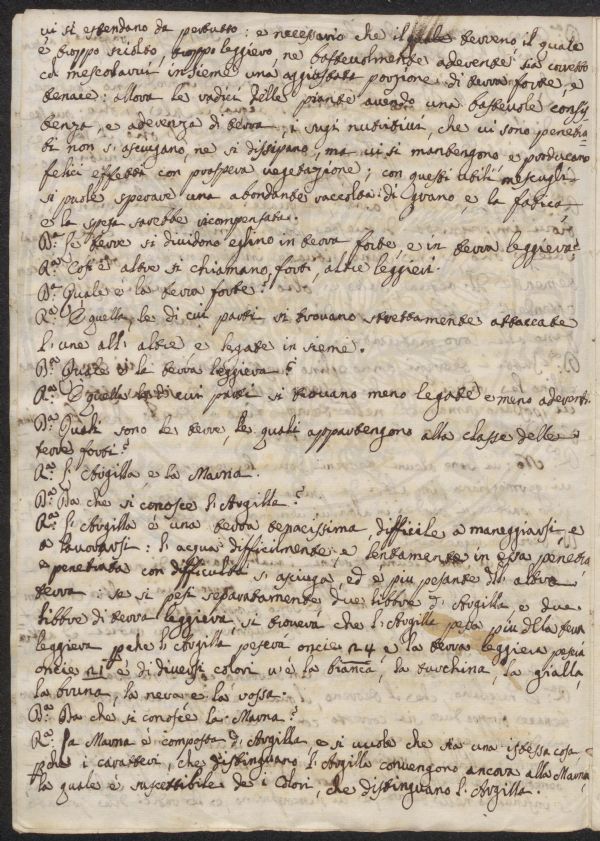 vi si estendano da pertutto: e necessario che il terreno il quale
é troppo sciolto, troppo leggiero, ne bastevolmente aderente sia corretto
col mescolarvi insieme una aggiustata porzione di terra forte, e
tenace: allora le radici delle piante avendo una bastevole consis
tenza, e aderenza di terra, i sugi nutritivi, che vi sono penetra
ti non si asciugano, ne si dissipano, ma vi si mantengono e producano
felici effetti con prospera vegetazione; con questi utili mescugli
si puole sperare una abondante raccolta di Grano, e la fatica
e la spesa sarebbe ricompensata.
Da. Le terre si dividono eglino in terra forte, e in terra leggiera?
Ra. Cosi é altre si chiamano forti, altre leggieri.
Da. Quale é la terra forte?
Ra. É quella, le di cui parti si trovano strettamente attaccate
l'une all'altre e legate insieme.
Da. Quale é la terra leggiera?
Ra. É quella le di cui parti si trovano meno legate e meno aderenti.
Da. Quali sono le terre, le quali appartengono alla classe delle
terre forti?
Ra. L'Argilla e la Marna.
Da. Da che si conosce l'Argilla?
Ra. L'Argilla é una terra tenacissima, difficile a maneggiarsi, e
a lavorarsi: l'acqua difficilmente e lentamente in essa penetra
e penetrata con difficultà si asciuga, ed é piu pesante di altra
terra: se si pesi separatamente due libbre d'Argilla e due
libbre di terra leggiera, si troverà che l'Argilla pesa piu della terra
leggiera pche l'Argilla peserà oncie 24 e la terra leggiera peserà
oncie 21 é di diversi colori v'é la bianca, la turchina, la gialla,
la bruna, la nera e la rossa.
Da. Da che si conosce la Marna?
Ra. La Marna é composta d'Argilla, e si vuole che sia una istessa cosa,
pche i caratteri, che distinguano l'Argilla convengono ancora alla Marna,
la quale é suscettibile de i Colori, che distinguano l'Argilla.